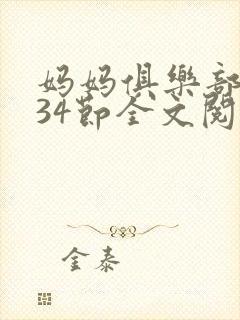 妈妈俱樂部
34節全文閱
金泰